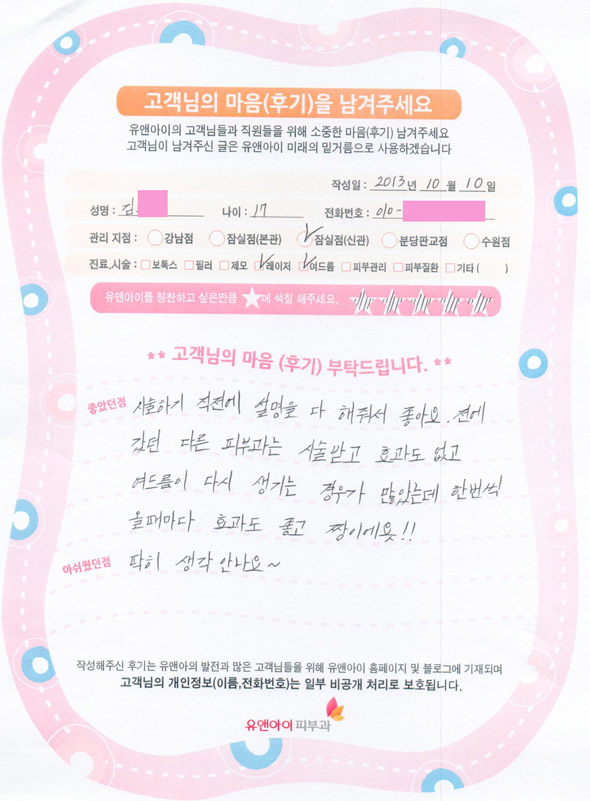 고객님의 마음(후기)을 남겨주세요
유앤아이의 고객님들과 직원들을 위해 소중한 마음(후기) 남겨주세요
고객님이 남겨주신 글은 유앤아이 미래의 밑거름으로 사용하겠습니다
작성일 : 2013년 10월 10일
성명 : 김 나이 : 17 전화번호 : 010-
관리 지점 : 강남점 잠실점(본관) 잠실점(신관) 분당판교점 수원점
진료,시술 : 보톡스 필러 제모 레이저 여드름 피부관리 피부질환 기타 ( )
유앤아이를 칭찬하고 싶은만큼 ★에 색칠 해주세요.
** 고객님의 마음 (후기) 부탁드립니다. **
좋았던점 시술하기 직전에 설명을 다 해줘서 좋아요. 전에
갔던 다른 피부과는 시술받고 효과도 없고
여드름이 다시 생기는 경우가 많았는데 한번씩
올때마다 효과도 좋고 짱이에욧!!
아쉬웠던점 딱히 생각 안나요~
작성해주신 후기는 유앤아의 발전과 많은 고객님들을 위해 유앤아이 홈페이지 및 블로그에 기재되며
고객님의 개인정보(이름,전화번호)는 일부 비공개 처리로 보호됩니다.
유앤아이피부과